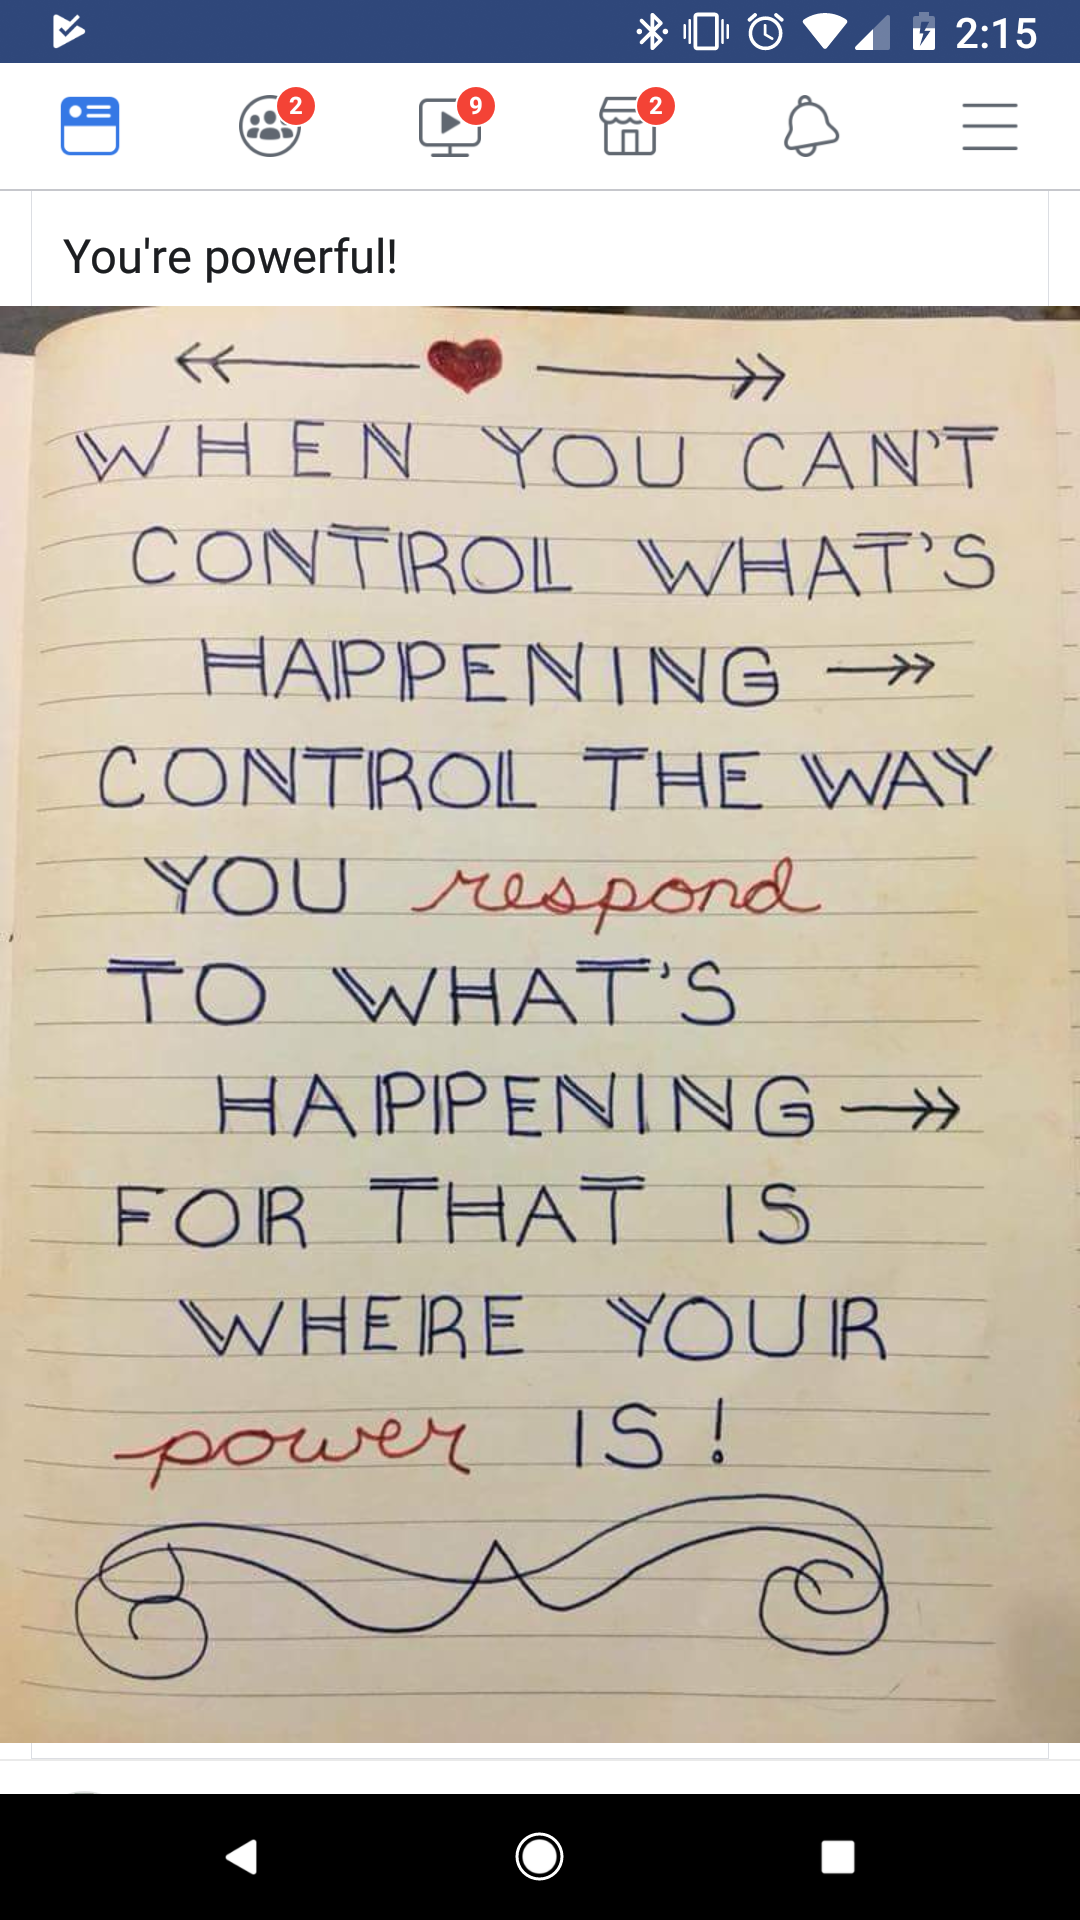 2:15
2 9 2
You're powerful!
WHEN YOU CAN'T
CONTROL WHAT'S
HAPPENING
CONTROL THE WAY
YOU respond
TO WHAT'S
HAPPENING
FOR THAT IS
WHERE YOUR
power IS!